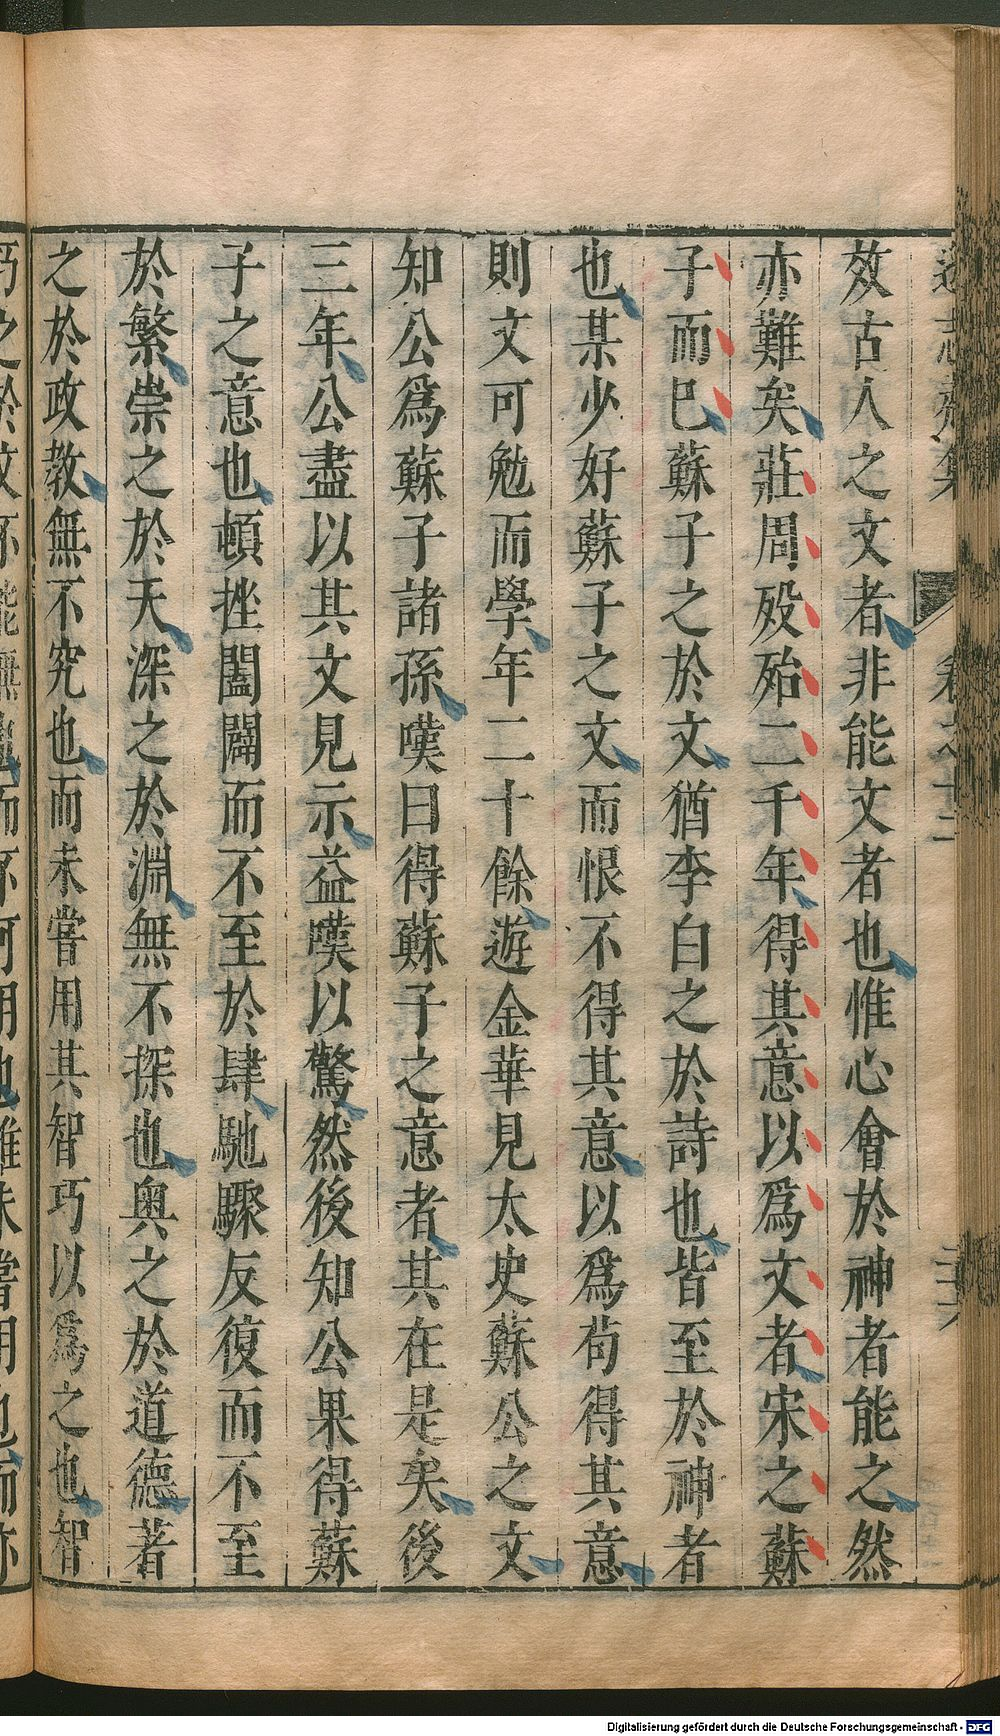 效古人之文者非能文者也惟心會於神者能之然
亦難矣莊周歿殆二千年得其意以爲文者宋之蘇
子而已蘇子之於文猶李白之於詩也皆至於神者
也某少好蘇子之文而恨不得其意以爲苟得其意
則文可勉而學年二十餘遊金華見太史蘇公之文
知公爲蘇子諸孫嘆曰得蘇子之意者其在是矣後
三年公盡以其文見示益嘆以驚然後知公果得蘇
子之意也頓挫闔闢而不至於肆馳驟反復而不至
於繁崇之於天深之於淵無不探也奥之於道德著
之於政教無不究也而未嘗用其智巧以爲之也智
卷之十二
二十六
Digitalisierung gefördert durch die Deutsche Forschungsgemeinschaft - DFG